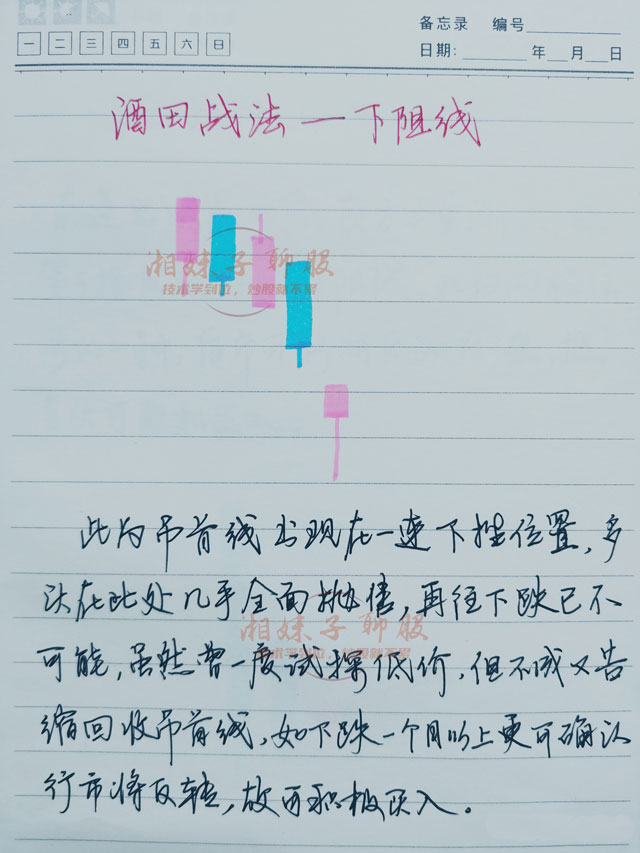 备忘录 编号
一 二 三 四 五 六 日
日期: 年 月 日
酒田战法—下阻线
湘妹子聊股
技术学到位，炒股赚不累
此为吊首线出现在一连下挫位置，多
头在此处几乎全面抛售，再往下跌已不
湘妹子聊股
技术学到位，炒股赚不累
可能，虽然曾一度试探低价，但不成又告
缩回收吊首线，如下跌一个月以上更可确认
行市将反转，故可积极买入。